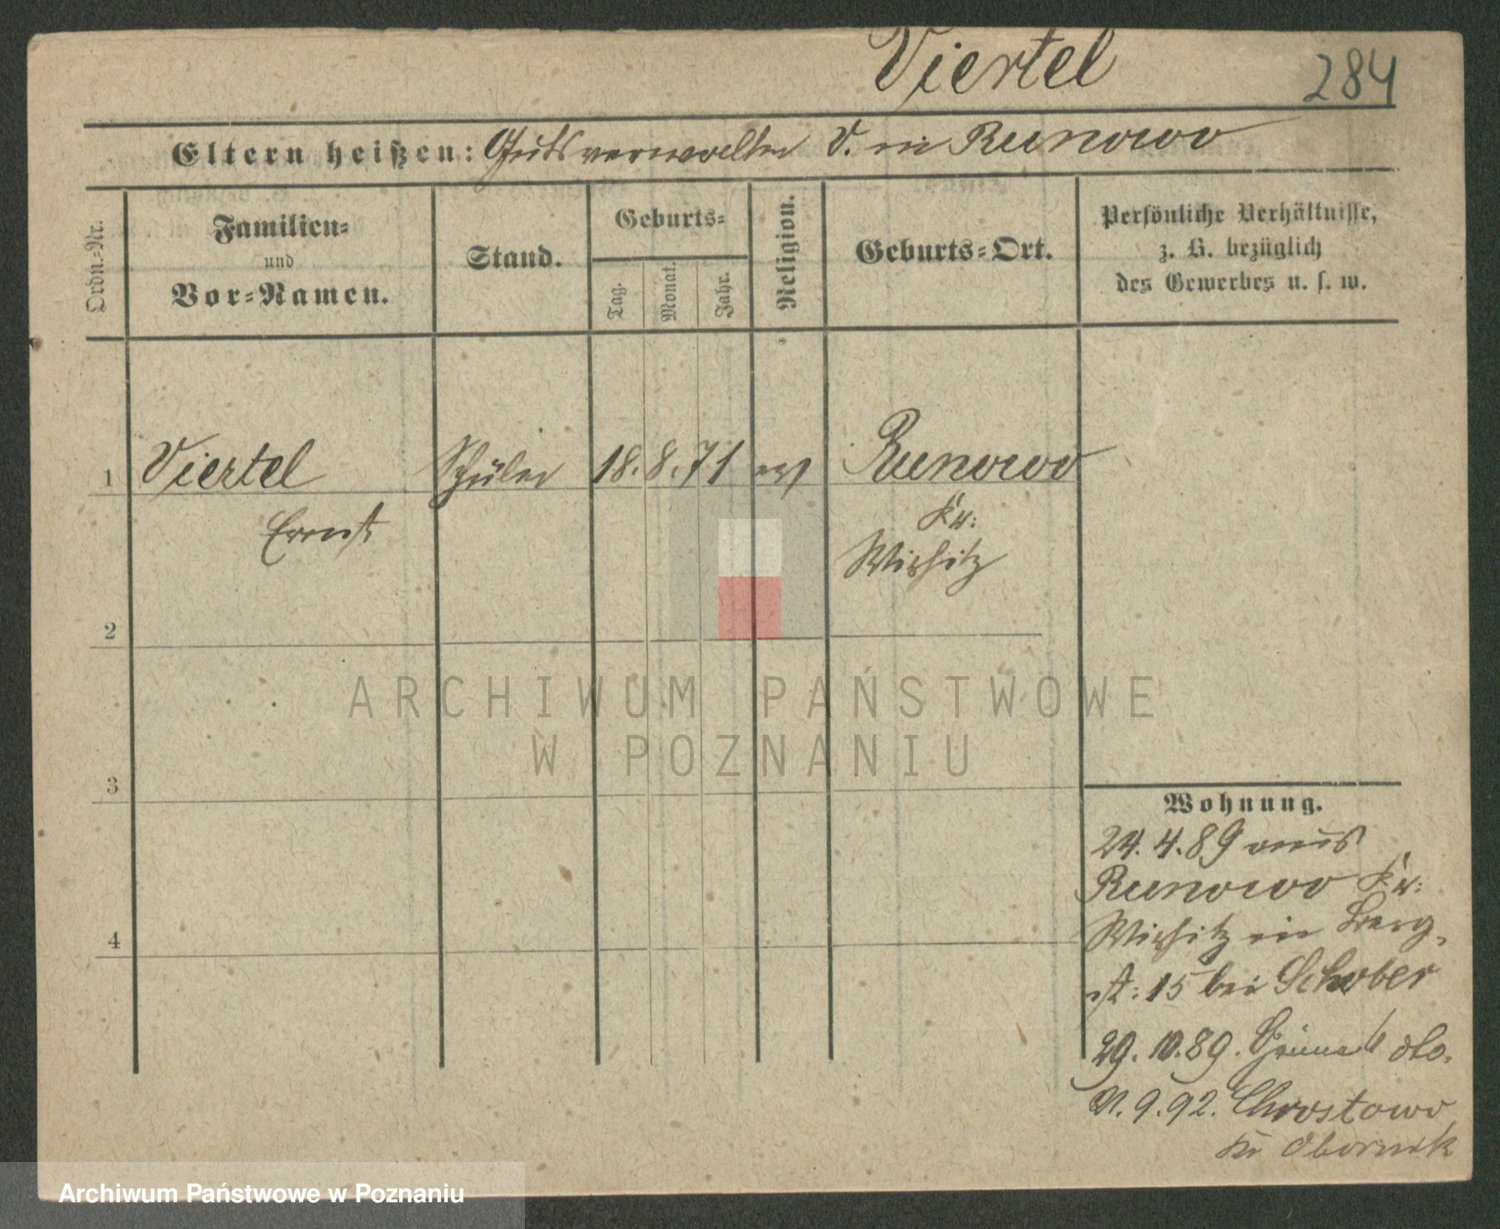 Viertel
284
Eltern heißen: Gutsverwalter V. in Runowo
Ordn.-Nr.
Familien-
und
Vor-Namen.
Stand.
Geburts-
Tag.
Monat.
Jahr.
Religion.
Geburts-Ort.
Persönliche Verhältnisse,
z. B. bezüglich
des Gewerbes u. s. w.
1 Viertel Schüler 18. 8. 71 ev Runowo
Ernst
Kr:
Wirsitz
2
3
4
Wohnung.
24. 4. 89 aus
Runowo Kr:
Wirsitz in Berg-
st: 15 bei Schober
29. 10. 89. 6 dto.
9. 92. Chrostowo
Kr Obornik
ARCHIWUM PAŃSTWOWE
W POZNANIU
Archiwum Państwowe w Poznaniu